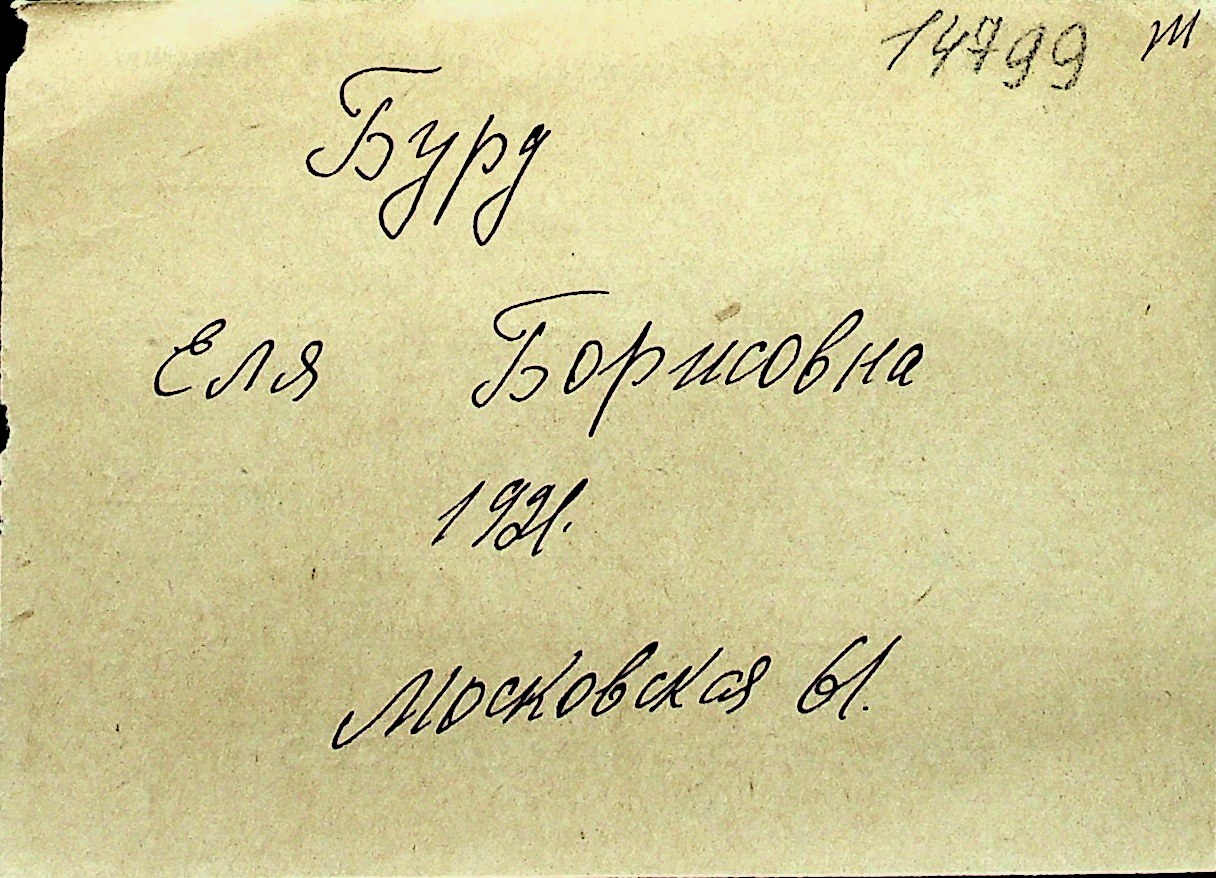 14799 ж
Бурд
Еля Борисовна
1921.
Московская 61.